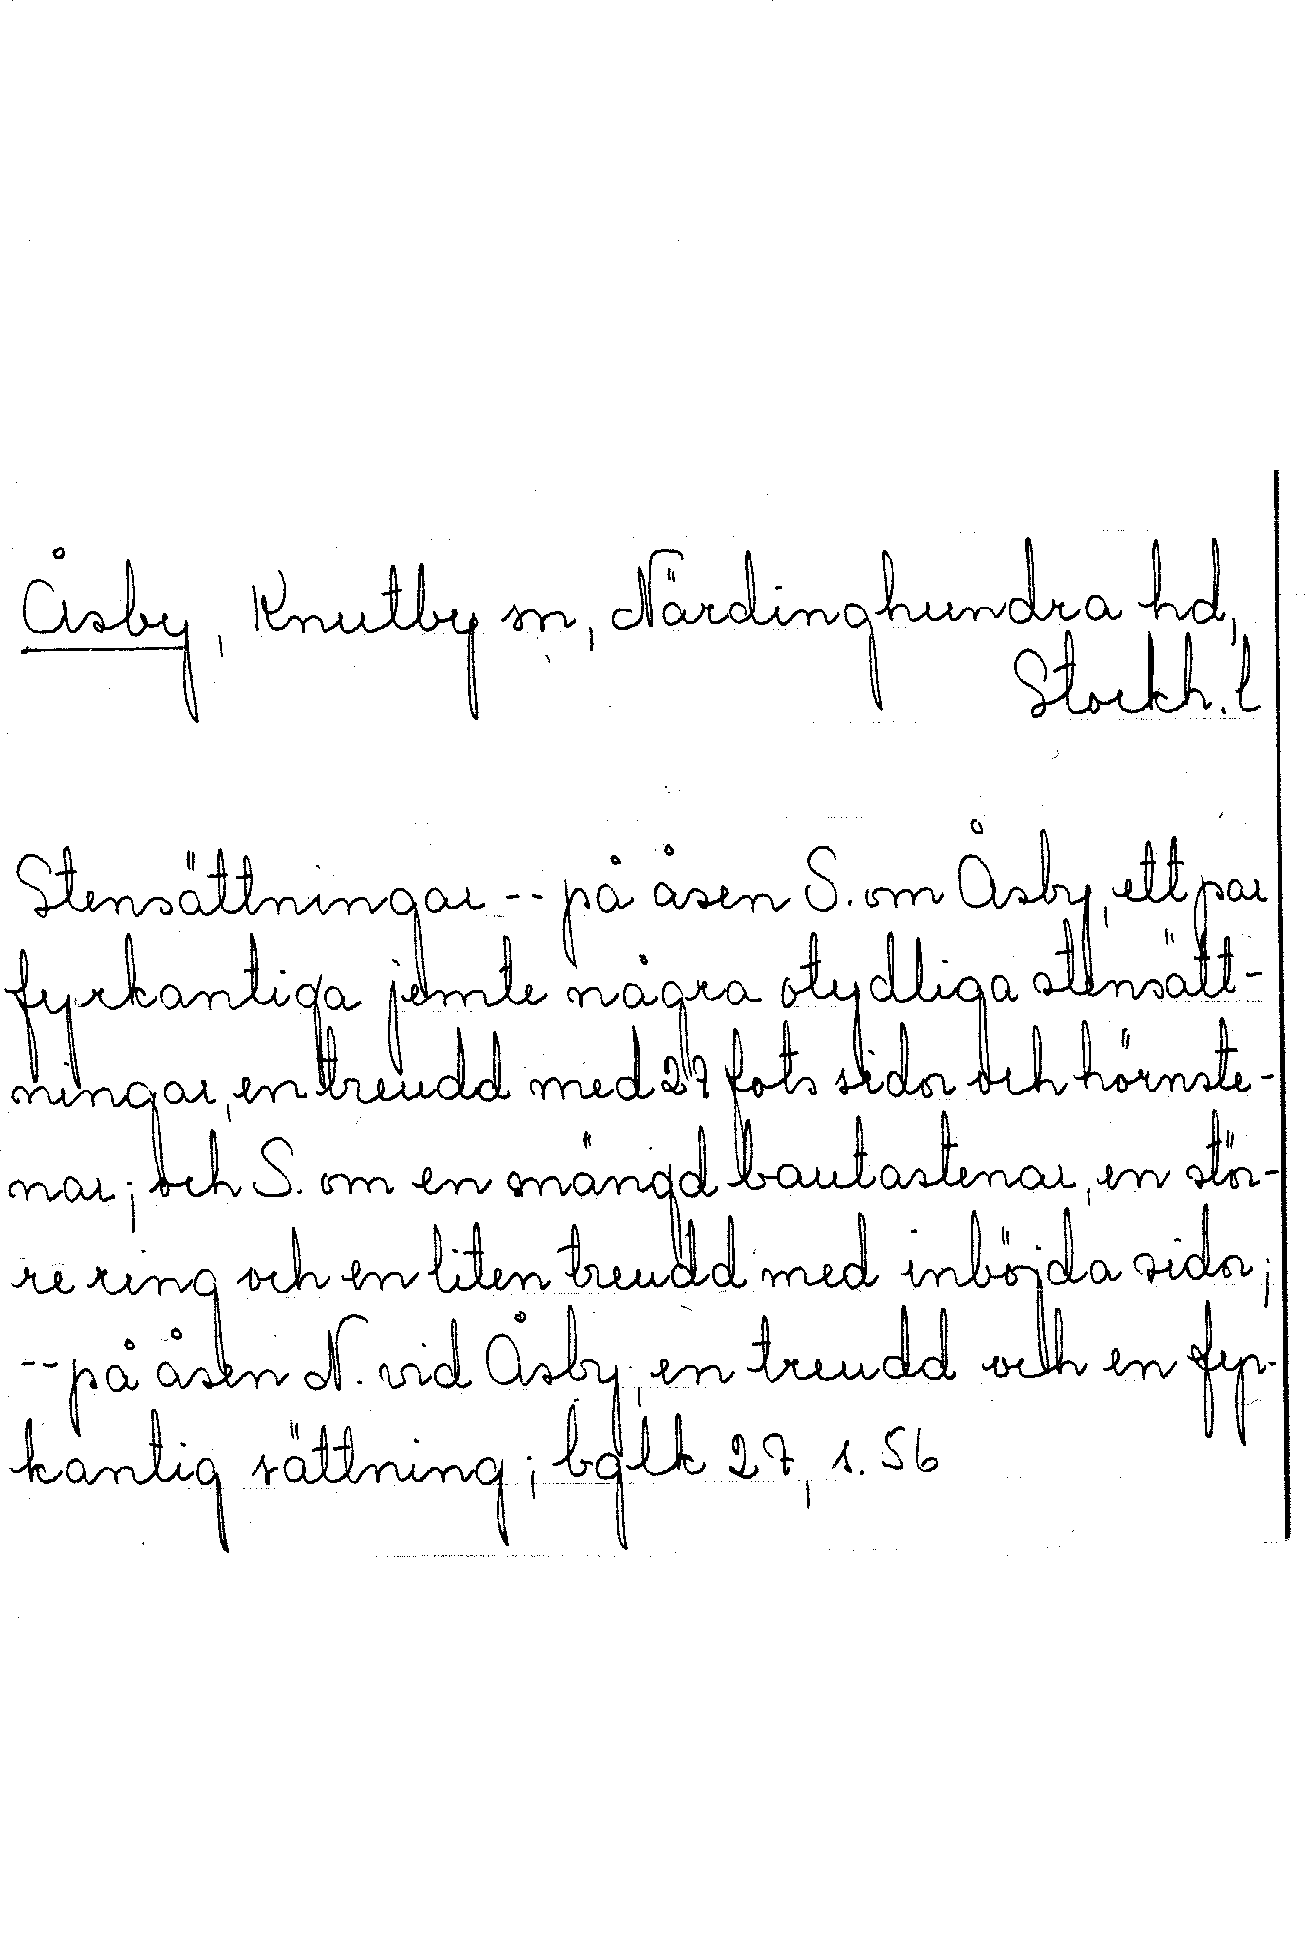 Åsby, Knutby sn, Närdinghundra hd,
Stockh. l
Stensättningar -- på åsen S. om Åsby, ett par
fyrkantiga jemte några otydliga stensätt-
ningar, en treudd med 27 fots sidor och hörnste-
nar; och S. om en mängd bautastenar, en stör-
re ring och en liten treudd med inböjda sidor;
-- på åsen N. vid Åsby, en treudd och en fyr-
kantig sättning; bglk 27, s. 56